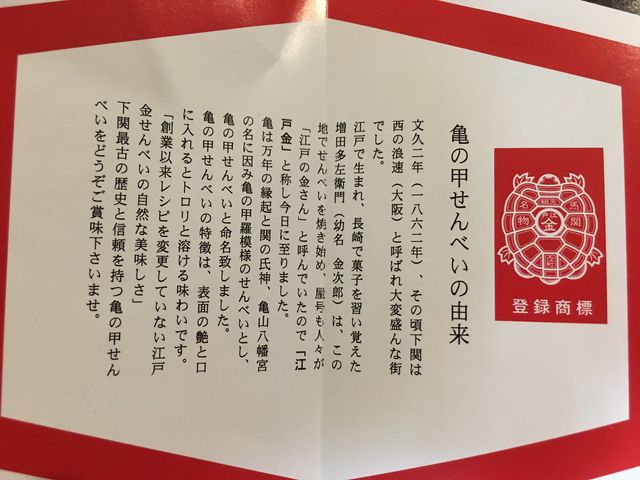 亀の甲せんべいの由来
文久二年（一八六二年）、その頃下関は
西の浪速（大阪）と呼ばれ大変盛んな街
でした。
江戸で生まれ、長崎で菓子を習い覚えた
増田多左衛門（幼名　金次郎）は、この
地でせんべいを焼き始め、屋号も人々が
「江戸の金さん」と呼んでいたので「江
戸金」と称し今日に至りました。
亀は万年の縁起と関の氏神、亀山八幡宮
の名に因み亀の甲羅模様のせんべいとし、
亀の甲せんべいと命名致しました。
亀の甲せんべいの特徴は、表面の艶と口
に入れるとトロリと溶ける味わいです。
「創業以来レシピを変更していない江戸
金せんべいの自然な美味しさ」
下関最古の歴史と信頼を持つ亀の甲せん
べいをどうぞご賞味下さいませ。
馬関
名物
登録商標